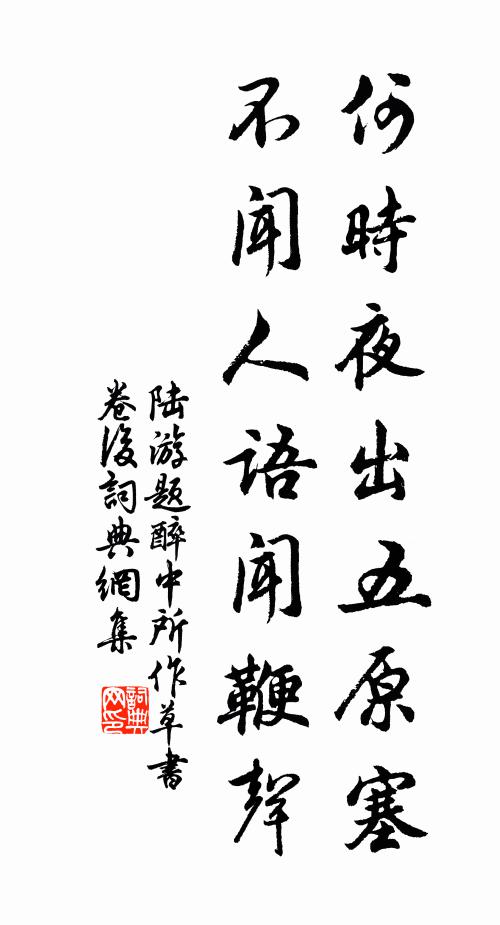 何時夜出五原塞
不聞人語聞鞭聲
陆游題醉中所作草書
卷後詞典網集
詞典
网印